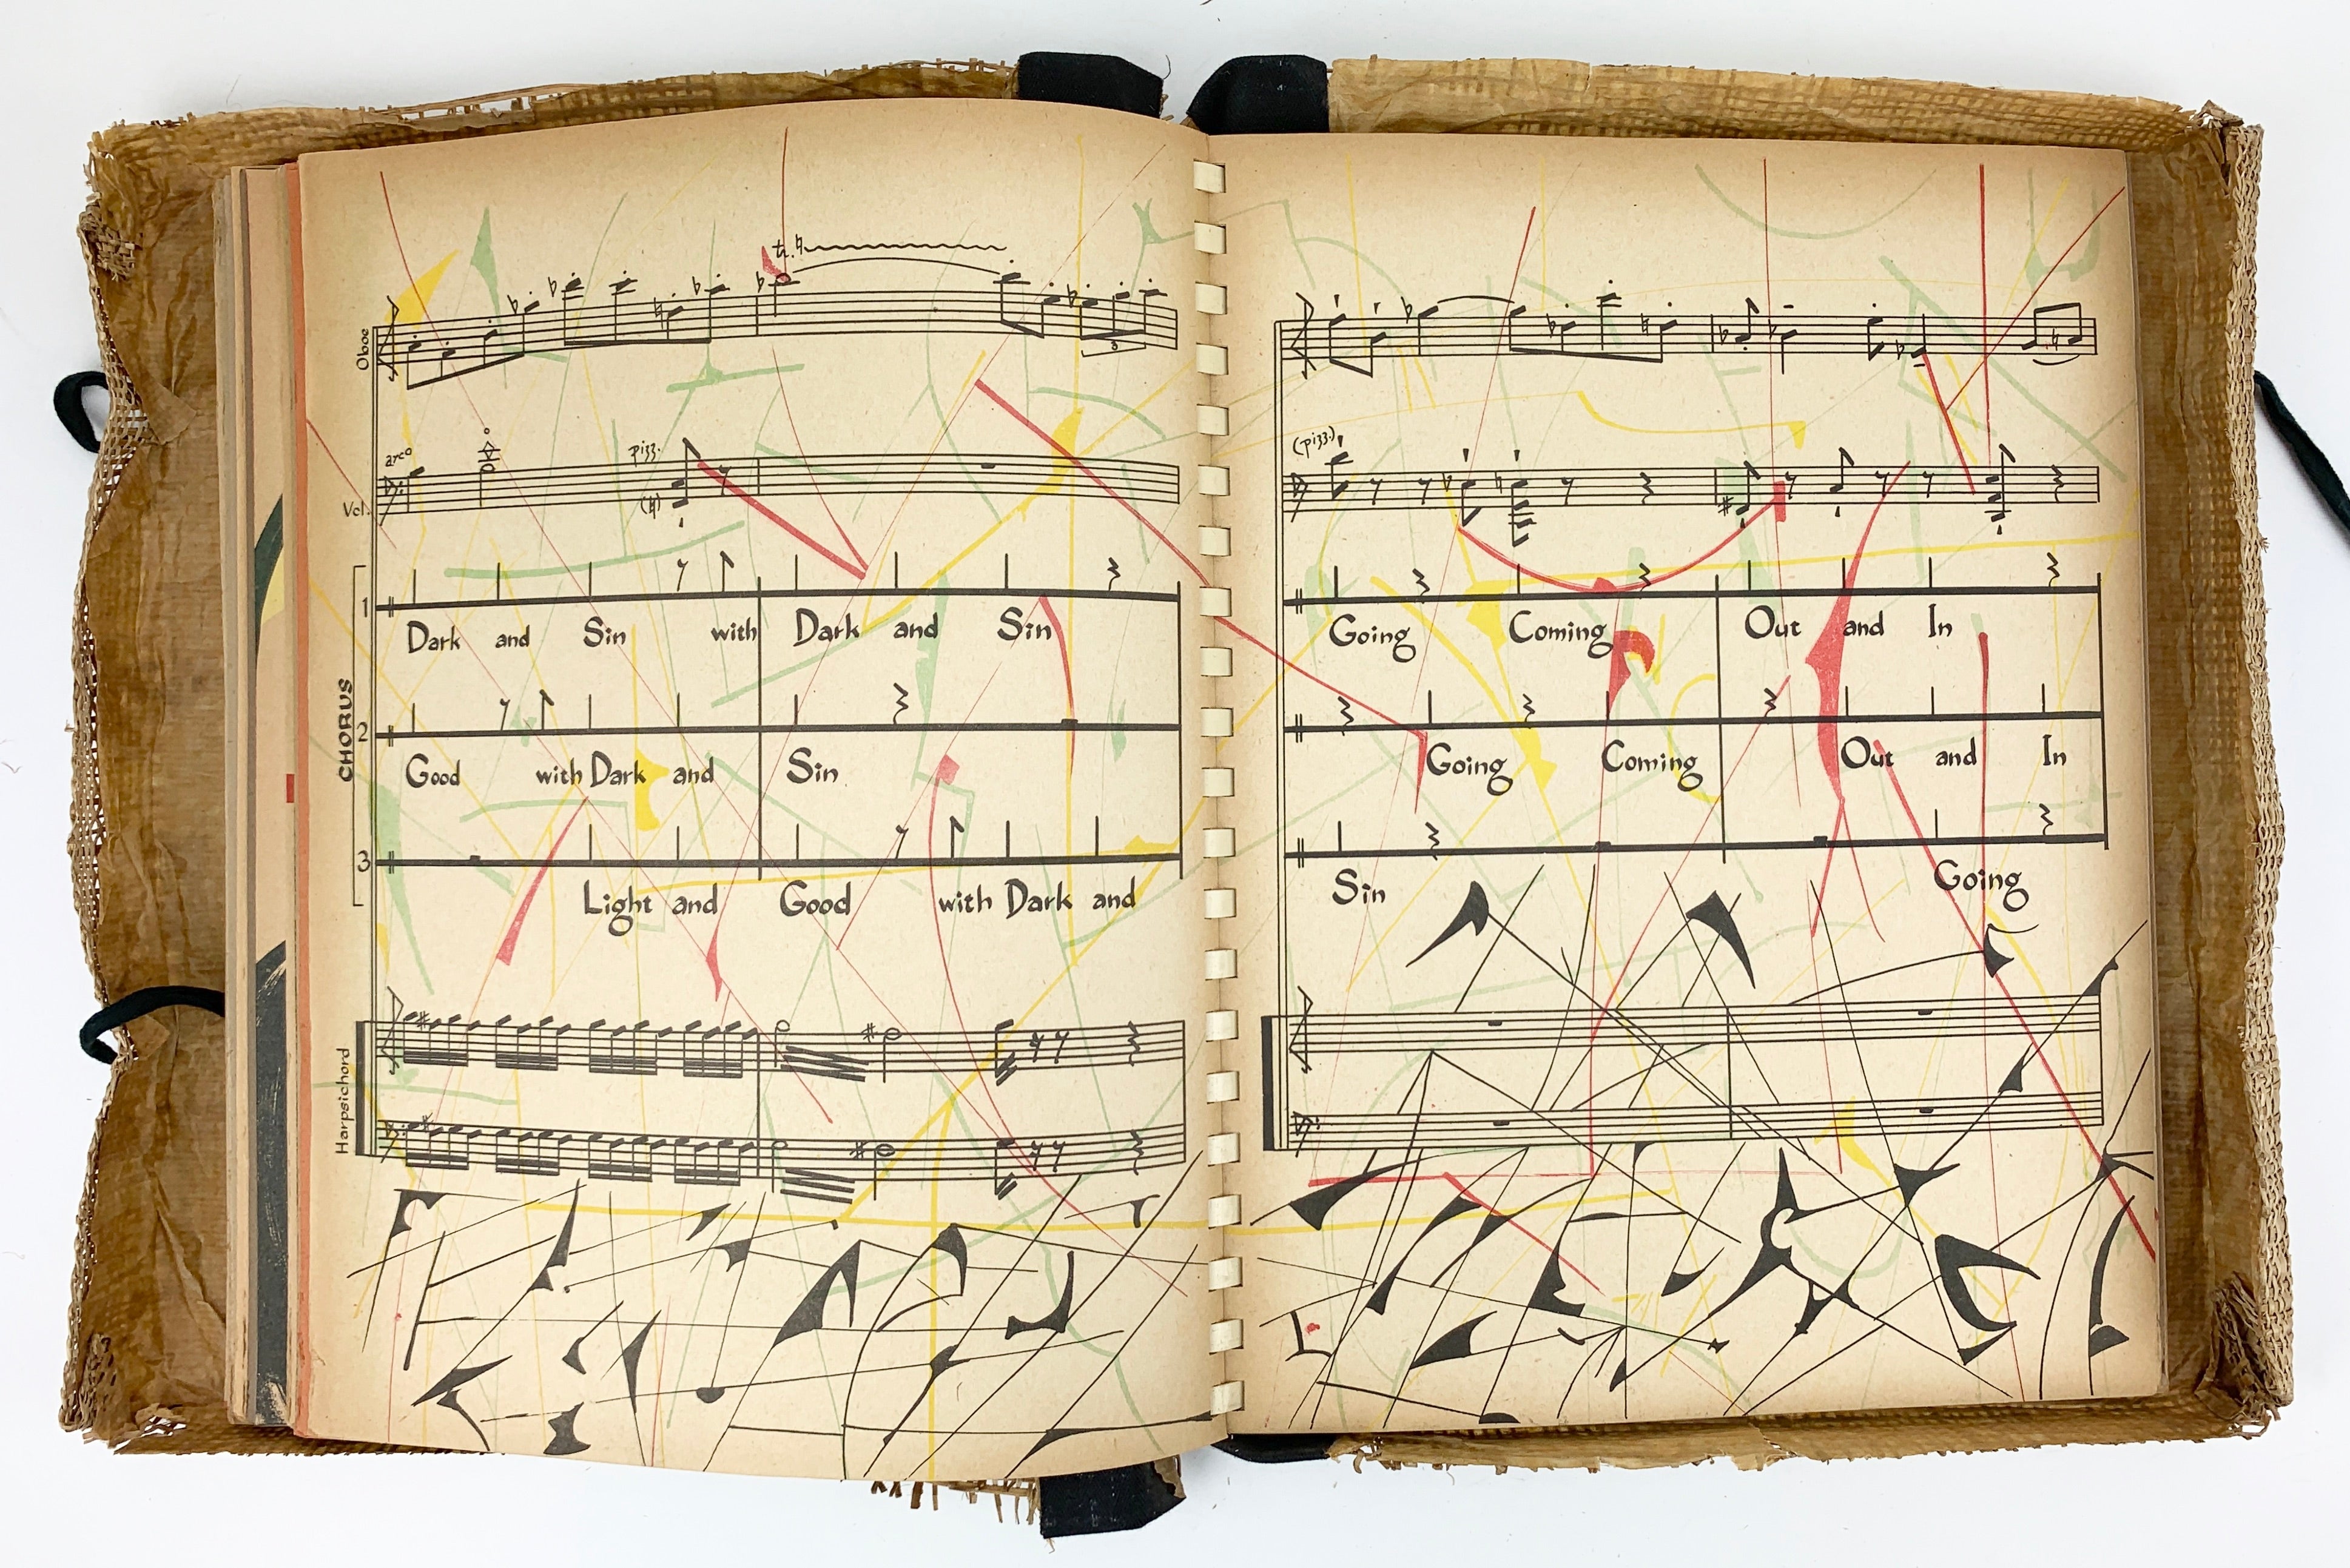 Oboe
tr.
3
arco
pizz.
Vcl.
CHORUS
1
Dark and Sin with Dark and Sin
2
Good with Dark and Sin
3
Light and Good with Dark and
Harpsichord
(pizz.)
Going Coming Out and In
Going Coming Out and In
Sin Going